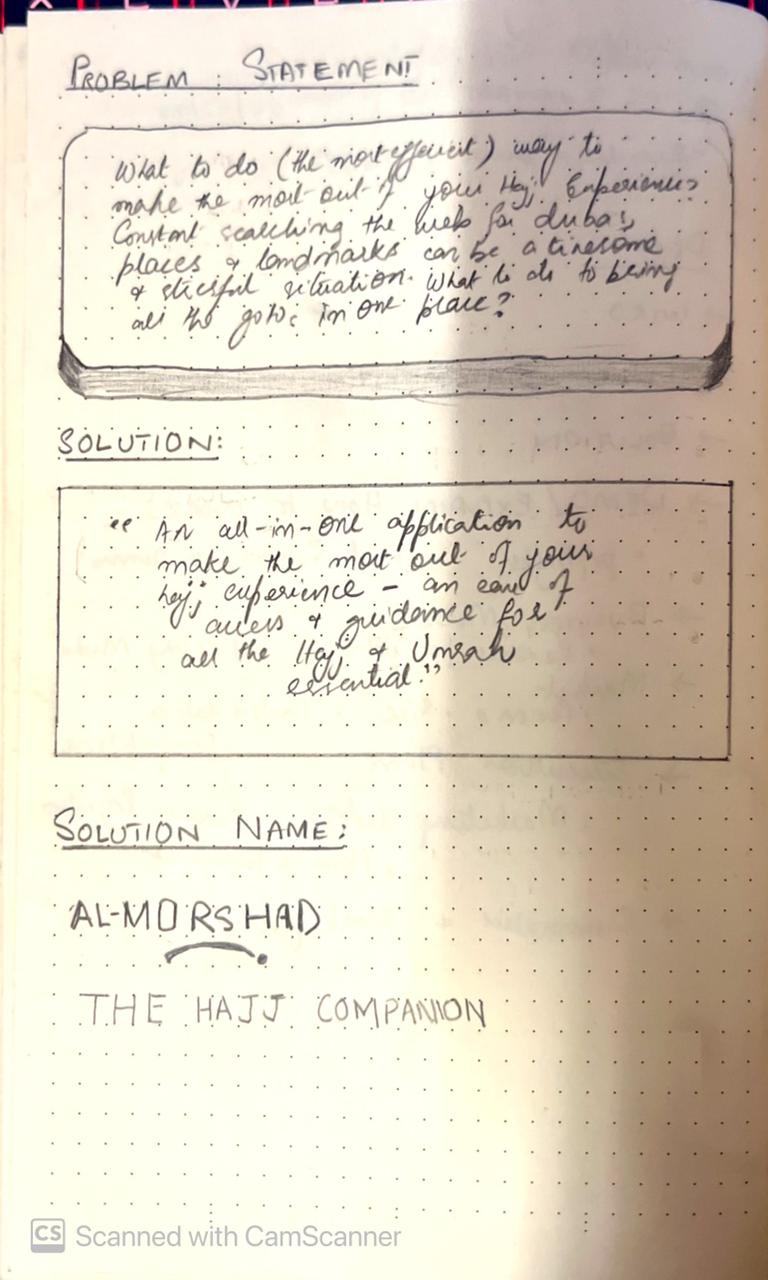 PROBLEM : STATEMENT
What to do (the most efficient) way to
make the most out of your Hajj Experience?
Constant searching the web for duas,
places & landmarks can be a tiresome
& stressful situation. What to do to bring
all the goto's in one place?
SOLUTION:
" An all-in-one application to
make the most out of your
hajj experience – an ease of
access & guidance for
all the Hajj & Umrah
essential."
SOLUTION NAME:
AL-MORSHAD
THE HAJJ COMPANION
CS Scanned with CamScanner